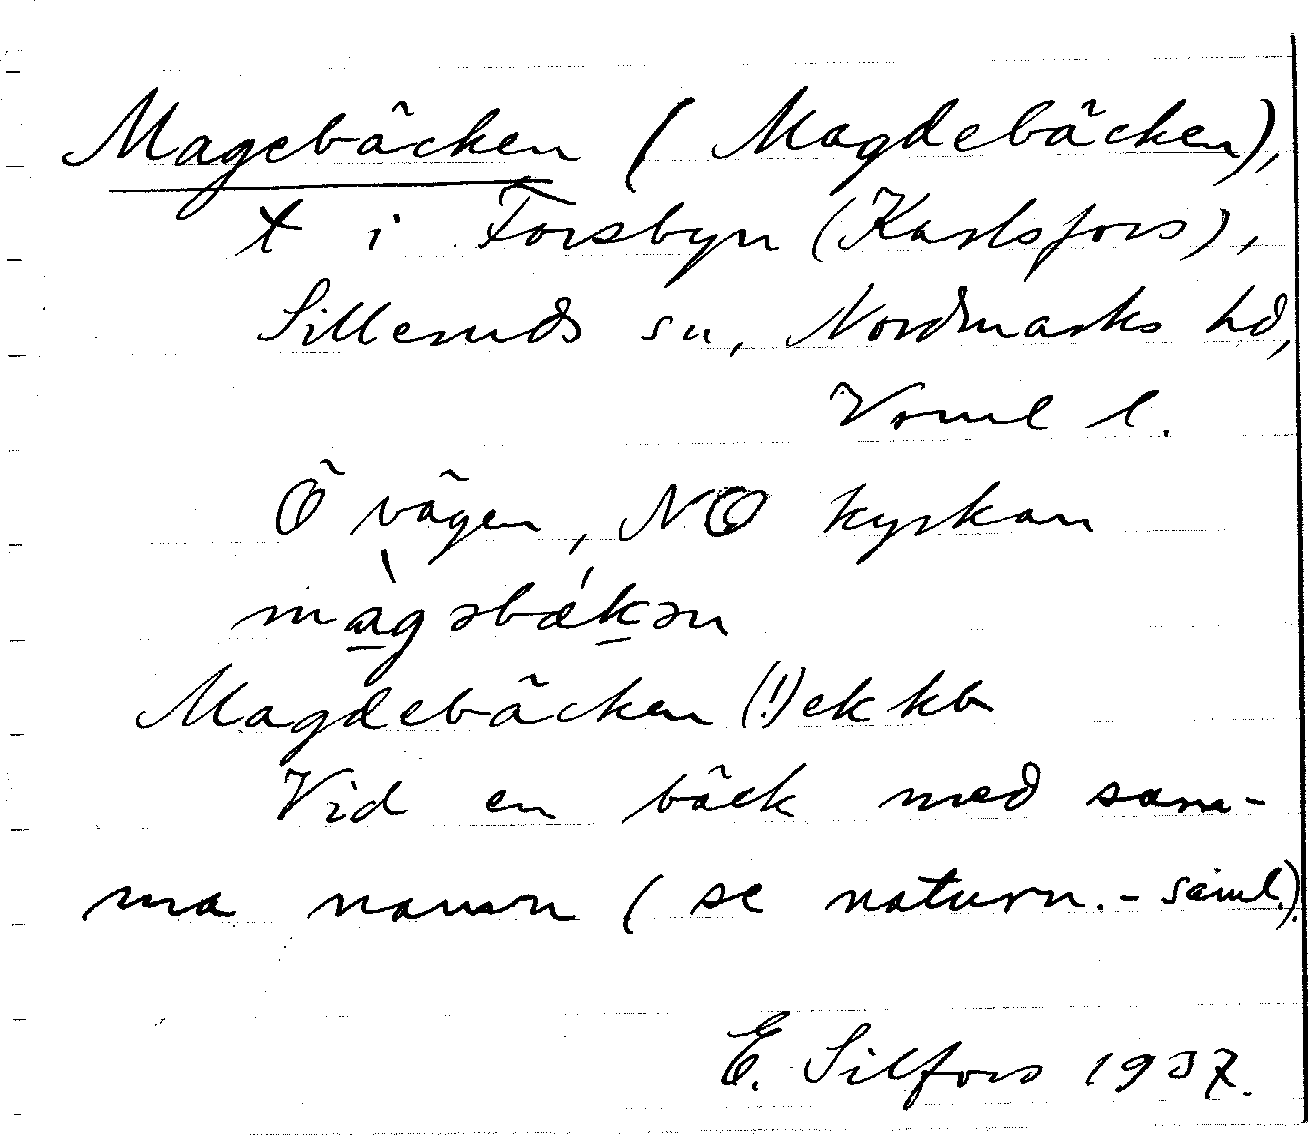 Magebäcken (Magdebäcken),
t i Forsbyn (Karlsfors),
Silleruds sn, Nordmarks hd,
Vrml l.
Ö vägen, NO kyrkan
màgəbǽkən
Magdebäcken (!) ek kb
Vid en bäck med sam-
ma namn (se naturn.-saml.).
E. Silfors 1937.